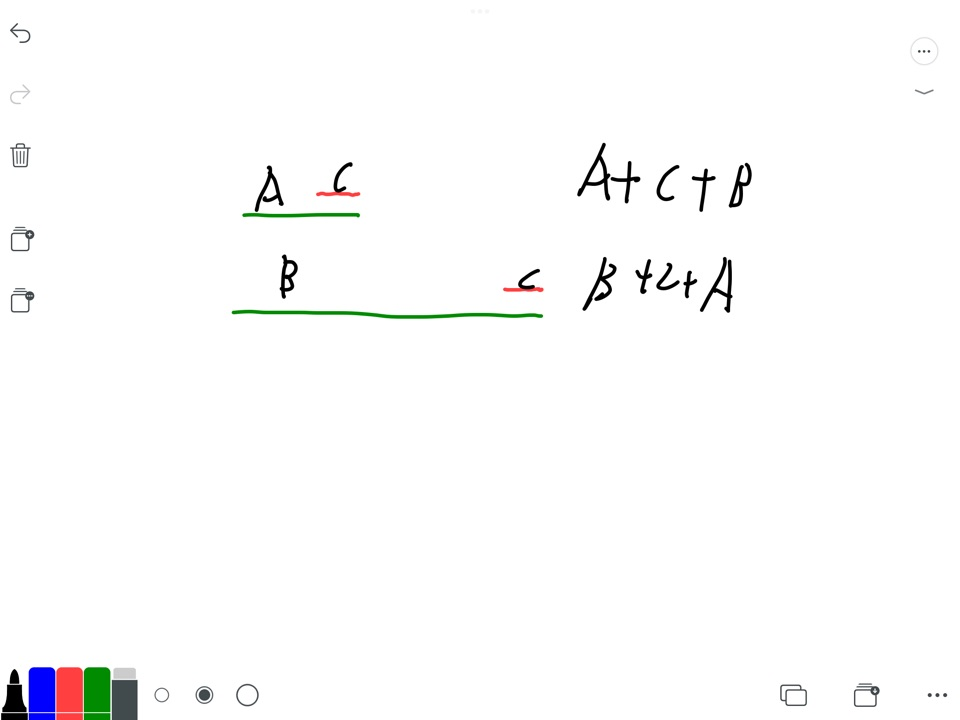 A C A+C+B
B C B+C+A